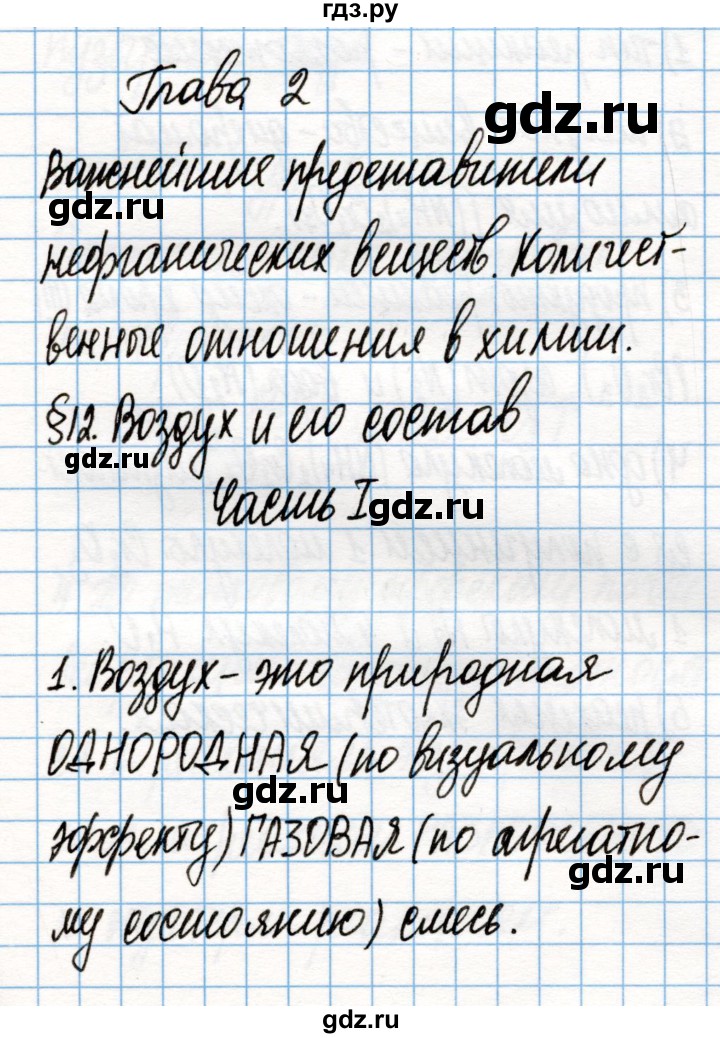 гдз.ру
Глава 2
gdz.ru
Важнейшие представители
gdz.ru
неорганических веществ. Количест-
венные отношения в химии.
§12. Воздух и его состав
gdz.ru
Часть I
gdz.ru
1. Воздух - это природная
ОДНОРОДНАЯ (по визуальному
gdz.ru
эффекту) ГАЗОВАЯ (по агрегатно-
gdz.ru
му состоянию) смесь.
gdz.ru